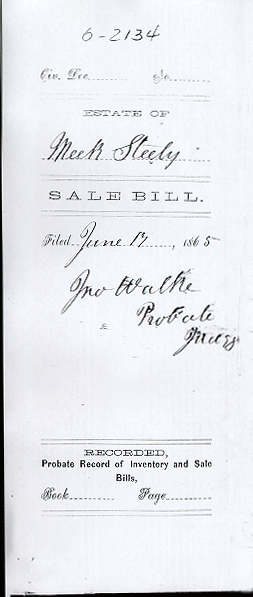 6-2134
Civ. Doc. No.
ESTATE OF
Meek Steely
SALE BILL.
Filed June 17, 1865
Jno Walke
Probate
Judge
RECORDED,
Probate Record of Inventory and Sale
Bills,
Book Page